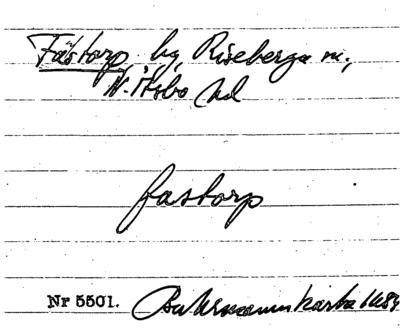 Fästorp, by, Riseberga sn,
N. Åsbo hd
fastorp
Nr 5501. Buhrmanns karta 1684